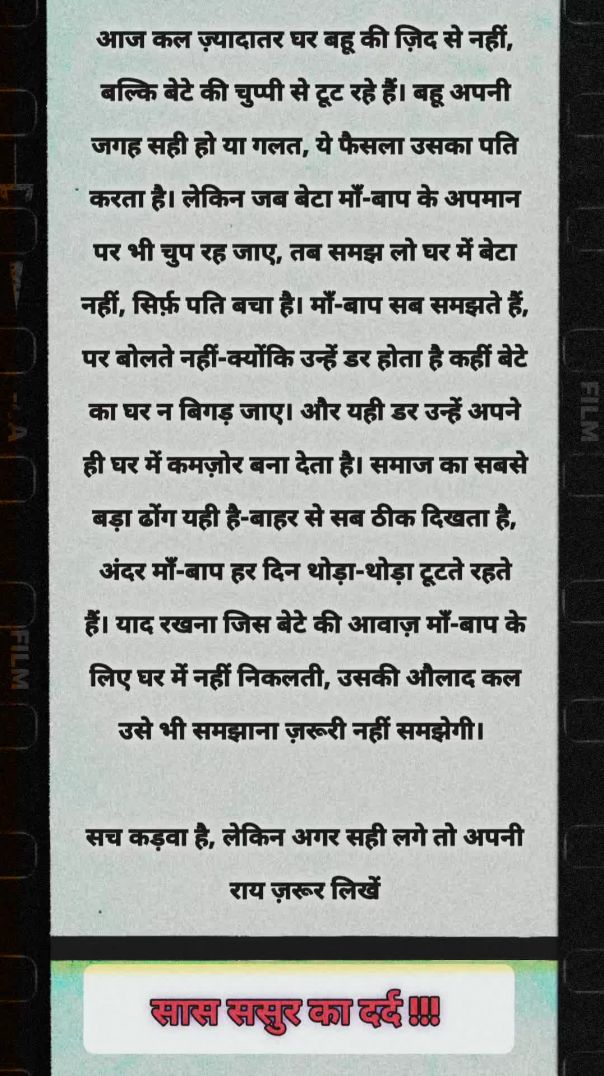 आज कल ज़्यादातर घर बहू की ज़िद से नहीं,
बल्कि बेटे की चुप्पी से टूट रहे हैं। बहू अपनी
जगह सही हो या गलत, ये फैसला उसका पति
करता है। लेकिन जब बेटा माँ-बाप के अपमान
पर भी चुप रह जाए, तब समझ लो घर में बेटा
नहीं, सिर्फ़ पति बचा है। माँ-बाप सब समझते हैं,
पर बोलते नहीं-क्योंकि उन्हें डर होता है कहीं बेटे
का घर न बिगड़ जाए। और यही डर उन्हें अपने
ही घर में कमज़ोर बना देता है। समाज का सबसे
बड़ा ढोंग यही है-बाहर से सब ठीक दिखता है,
अंदर माँ-बाप हर दिन थोड़ा-थोड़ा टूटते रहते
हैं। याद रखना जिस बेटे की आवाज़ माँ-बाप के
लिए घर में नहीं निकलती, उसकी औलाद कल
उसे भी समझाना ज़रूरी नहीं समझेगी।
सच कड़वा है, लेकिन अगर सही लगे तो अपनी
राय ज़रूर लिखें
सास ससुर का दर्द !!!
FILM
FILM